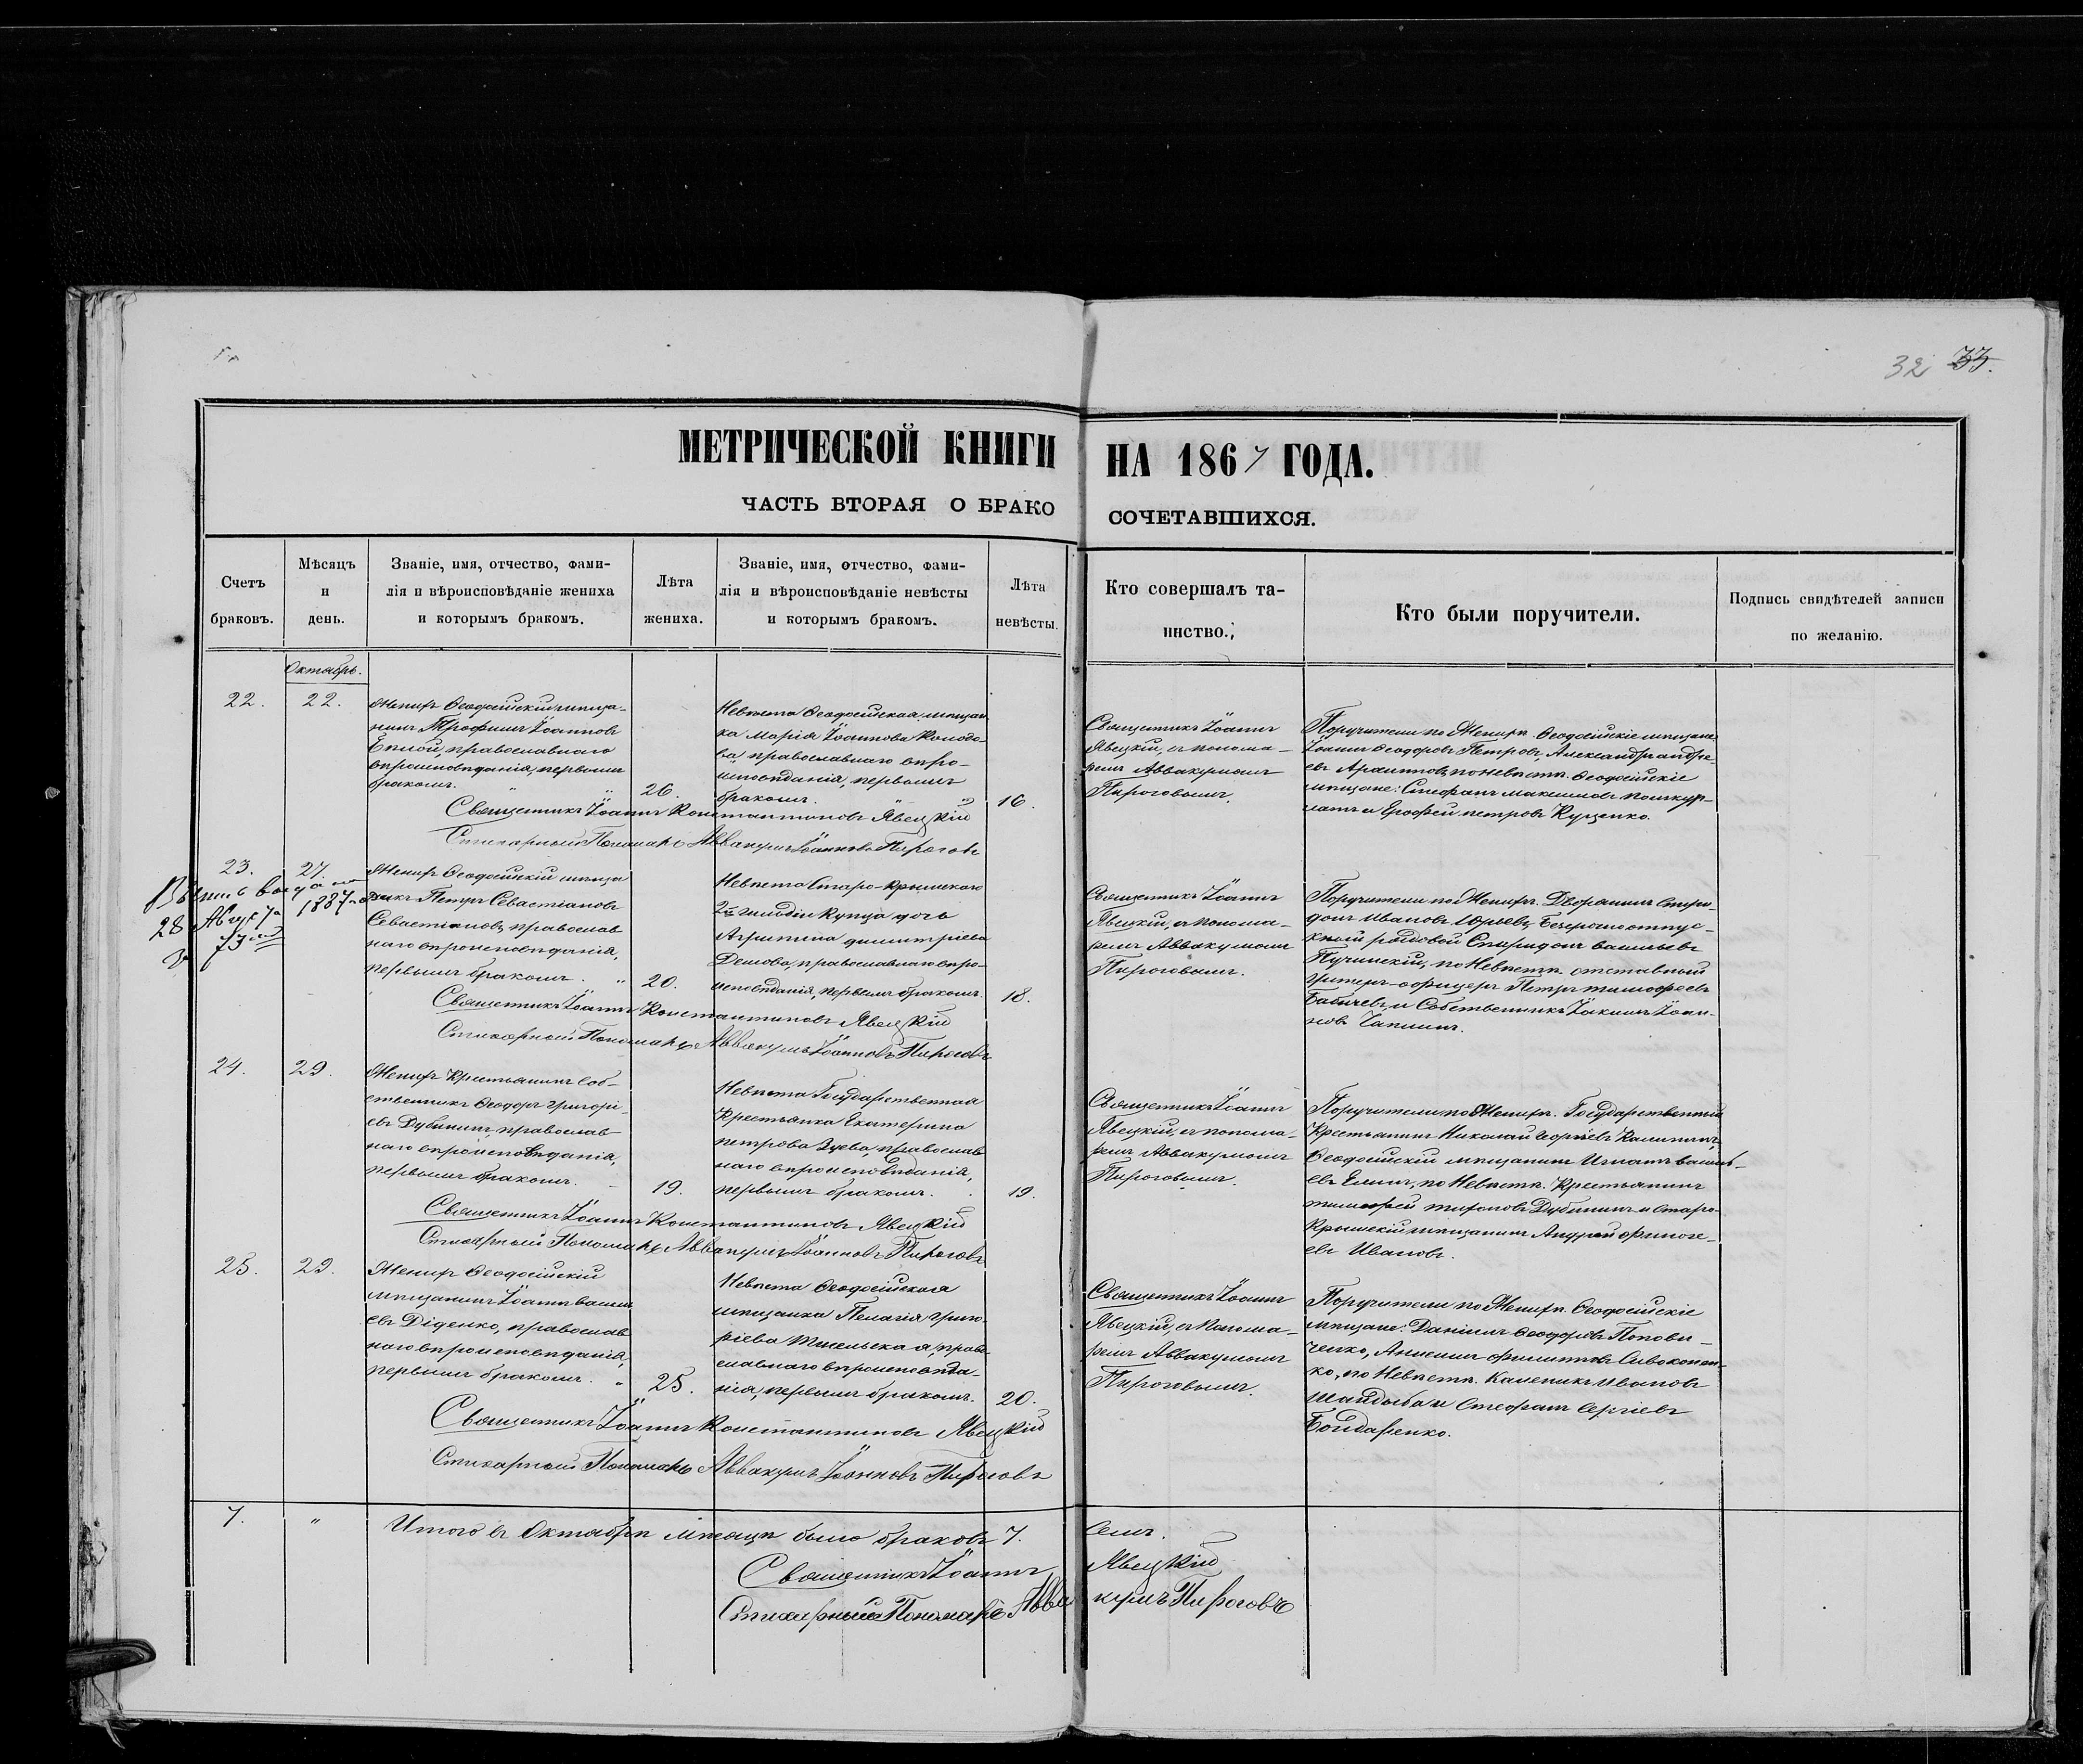 32 33.
МЕТРИЧЕСКОЙ КНИГИ НА 1867 ГОДА.
ЧАСТЬ ВТОРАЯ О БРАКОСОЧЕТАВШИХСЯ.
Счетъ браковъ.
Мѣсяцъ и день.
Званіе, имя, отчество, фами-
лія и вѣроисповѣданіе жениха
и которымъ бракомъ.
Лѣта жениха.
Званіе, имя, отчество, фами-
лія и вѣроисповѣданіе невѣсты
и которымъ бракомъ.
Лѣта невѣсты.
Кто совершалъ та-
инство.
Кто были поручители.
Подпись свидѣтелей записи
по желанію.
Октябрь.
22.
22.
Женихъ Ѳеодосійскій мѣща-
нинъ Трофимъ Іоанновъ
православнаго
вѣроисповѣданія, первымъ
бракомъ.
26.
Невѣста Ѳеодосійская мѣщан
ка Марія Іоаннова Колодо-
ва, православнаго вѣро-
исповѣданія, первымъ
бракомъ.
16.
Священникъ Іоаннъ
Явецкій, съ понома-
ремъ Аввакумомъ
Пироговымъ.
Поручители по Женихѣ. Ѳеодосійскіе мѣщане
Іоаннъ Ѳеодоровъ Петровъ, Александръ Андре-
евъ по невѣстѣ. Ѳеодосійскіе
мѣщане: Стефанъ Максимовъ
и Ерофей Петровъ Куценко.
Священникъ Іоаннъ Константиновъ Явецкій
Стихарный Пономарь Аввакумъ Іоанновъ Пироговъ
23.
27.
28 Авгус 1887
Женихъ Ѳеодосійскій мѣща
никъ Петръ Севастіановъ
Севастіановъ, православ
наго вѣроисповѣданія,
первымъ бракомъ.
20.
Невѣста Старо-Крымскаго
2й гильдіи купца дочь
Агрипина Димитріева
Демова, православнаго вѣро-
исповѣданія, первымъ бракомъ.
18.
Священникъ Іоаннъ
Явецкій, съ понома-
ремъ Аввакумомъ
Пироговымъ.
Поручители по Женихѣ. Дворянинъ Спири-
донъ Ивановъ Юрьевъ, Безсрочноотпус-
кной рядовой Спиридонъ Васильевъ
по Невѣстѣ отставный
Унтеръ-офицеръ Петръ Тимофеевъ
Бабичевъ, и Собственникъ Іакимъ Іоан-
новъ Чапкинъ.
Священникъ Іоаннъ Константиновъ Явецкій
Стихарный Пономарь Аввакумъ Іоанновъ Пироговъ
24.
29.
Женихъ Крестьянинъ Соб-
ственникъ Ѳеодоръ Григорі-
евъ Дубининъ, православ-
наго вѣроисповѣданія,
первымъ бракомъ.
19.
Невѣста Государственная
Крестьянка Екатерина
Петрова Зуева, православ
наго вѣроисповѣданія,
первымъ бракомъ.
19.
Священникъ Іоаннъ
Явецкій, съ понома-
ремъ Аввакумомъ
Пироговымъ.
Поручители по Женихѣ. Государственный
Крестьянинъ Николай Георгіевъ Калининъ,
Ѳеодосійскій мѣщанинъ Игнатъ Василь-
евъ Елинъ, по Невѣстѣ. Крестьянинъ
Тимофей Дубининъ и Старо-
Крымскій мѣщанинъ Андрей
евъ Ивановъ.
Священникъ Іоаннъ Константиновъ Явецкій
Стихарный Пономарь Аввакумъ Іоанновъ Пироговъ
25.
29.
Женихъ Ѳеодосійскій
мѣщанинъ Іоаннъ Васильевъ
Діденко, православ
наго вѣроисповѣданія,
первымъ бракомъ.
25.
Невѣста Ѳеодосійская
мѣщанка Пелагія Григо-
ріева право-
славнаго вѣроисповѣда-
нія, первымъ бракомъ.
20.
Священникъ Іоаннъ
Явецкій, съ понома-
ремъ Аввакумомъ
Пироговымъ.
Поручители по Женихѣ. Ѳеодосійскіе
мѣщане: Даніилъ Ѳеодоровъ Попови-
ченко, Анисимъ Филиповъ Сивокопен-
ко, по Невѣстѣ. Калиникъ Ивановъ
Шайдыба и Стефанъ Сергіевъ
Бондаренко.
Священникъ Іоаннъ Константиновъ Явецкій
Стихарный Пономарь Аввакумъ Іоанновъ Пироговъ
7. " Итого въ Октябрѣ мѣсяцѣ было браковъ 7. Семь.
Священникъ Іоаннъ Явецкій
Стихарный Пономарь Аввакумъ Пироговъ